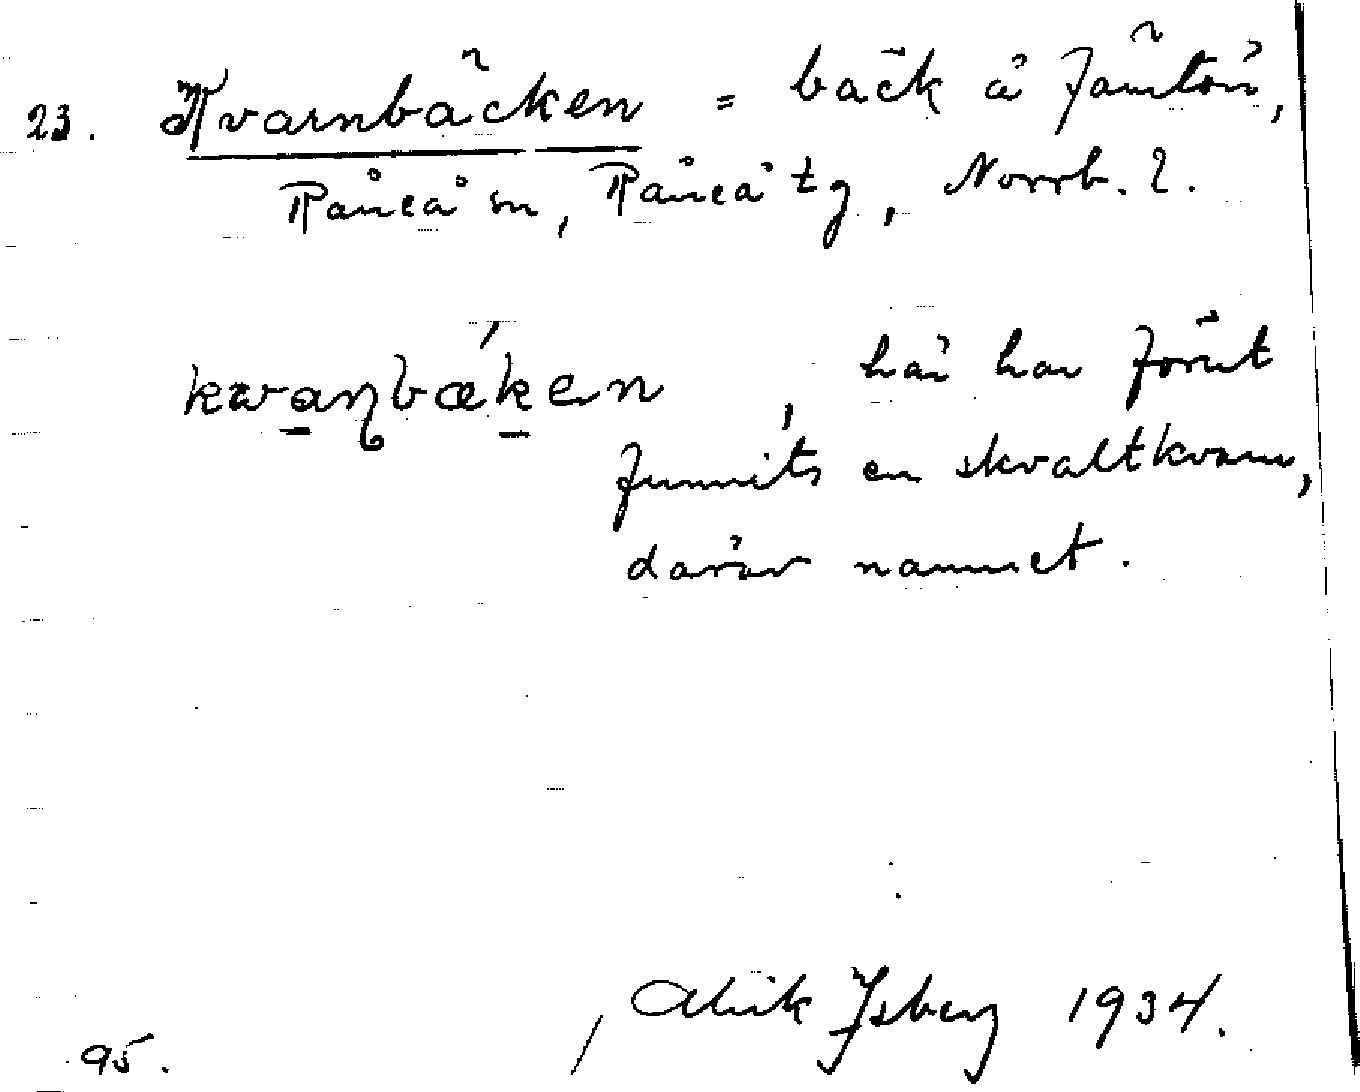 23. Kvarnbäcken = bäck å Jämtön,
Råneå sn, Råneå tg, Norrb. l.
kwaɳbæken, här har förut
funnits en skvaltkvarn,
därav namnet.
Alrik Ysberg 1934.
95.